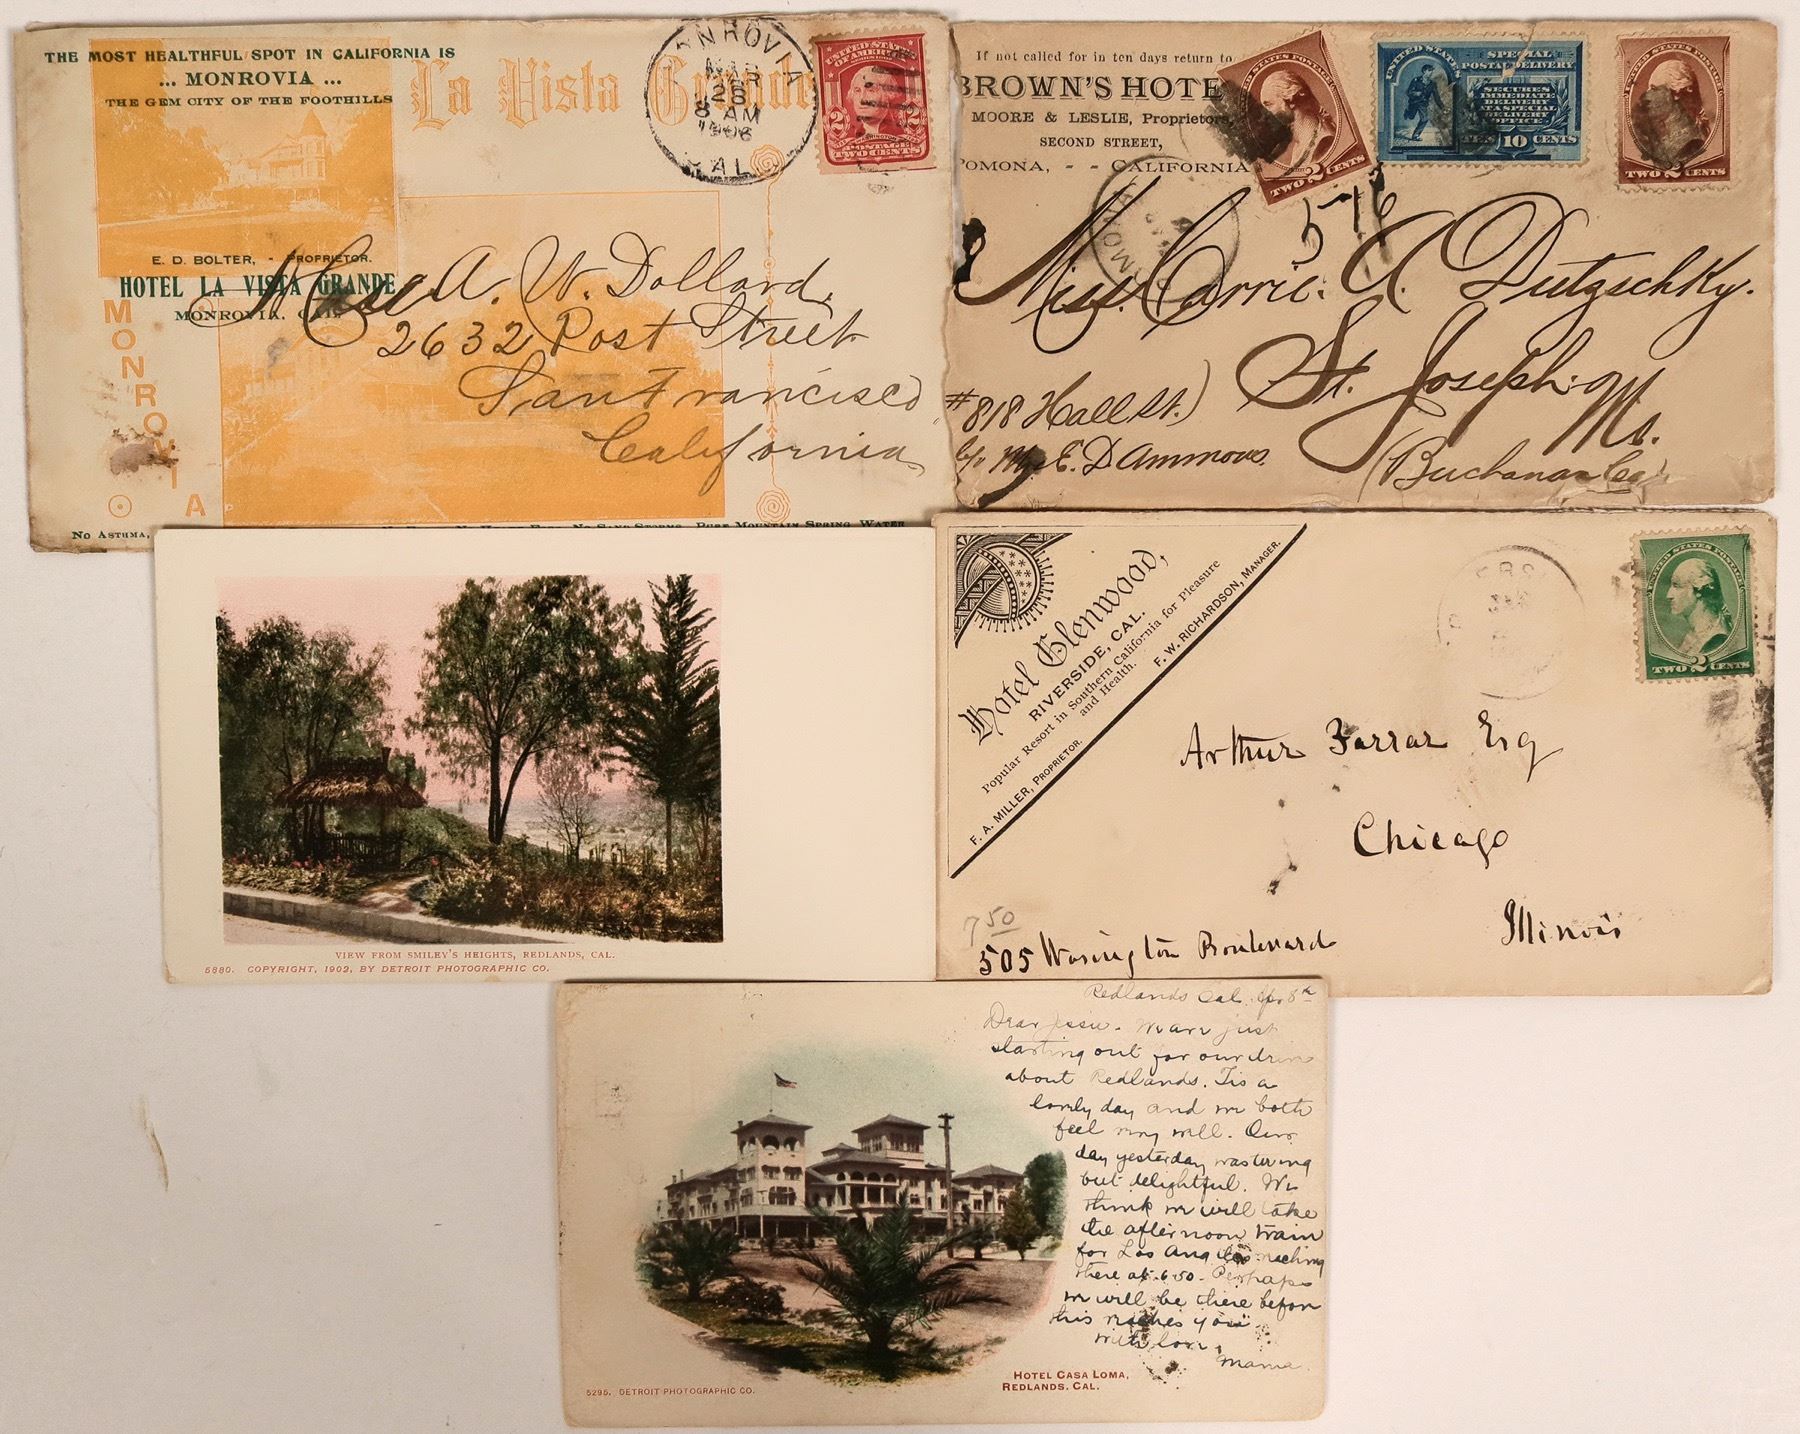 THE MOST HEALTHFUL SPOT IN CALIFORNIA IS
... MONROVIA ...
THE GEM CITY OF THE FOOTHILLS
La Vista Grande
MONROVIA
CAL
8 AM
1906
UNITED STATES OF AMERICA
2 2
POSTAGE
TWO CENTS
E. D. BOLTER, - PROPRIETOR.
HOTEL LA VISTA GRANDE
MONROVIA, CAL.
MONROVIA
A. W. Dollard,
2632 Post Street
San Francisco
California,
No Asthma,
No Sand Storms, Pure Mountain Spring Water
If not called for in ten days return to
BROWN'S HOTE
MOORE & LESLIE, Proprietors,
SECOND STREET,
POMONA, - - CALIFORNIA
TWO 2 CENTS
UNITED STATES
SPECIAL
POSTAL DELIVERY
SECURES
IMMEDIATE
DELIVERY
AT A SPECIAL
DELIVERY
OFFICE
TEN 10 CENTS
UNITED STATES POSTAGE
TWO 2 CENTS
576
Miss. Carrie. A. Dutzschky.
St. Joseph. Mo.
#818 Hall St.)
c/o Mr E. D Ammons.
(Buchanan Co.)
VIEW FROM SMILEY'S HEIGHTS, REDLANDS, CAL.
5880. COPYRIGHT, 1902, BY DETROIT PHOTOGRAPHIC CO.
Hotel Glenwood,
RIVERSIDE, CAL.
Popular Resort in Southern California for Pleasure
and Health.
F. A. MILLER, PROPRIETOR.
F. W. RICHARDSON, MANAGER.
UNITED STATES POSTAGE
TWO 2 CENTS
Arthur Farrar Esq
Chicago
Illinois
7 50
505 Wasington Boulevard
Redlands Cal. Ap. 8th
Dear Jessie. We are just
starting out for our drive
about Redlands. Tis a
lovely day and we both
feel very well. Our
day yesterday was tiring
but delightful. We
think we will take
the afternoon train
for Los Angeles reaching
there at 6.50. Perhaps
we will be there before
this reaches you
with love,
Mama.
HOTEL CASA LOMA,
REDLANDS, CAL.
5295. DETROIT PHOTOGRAPHIC CO.